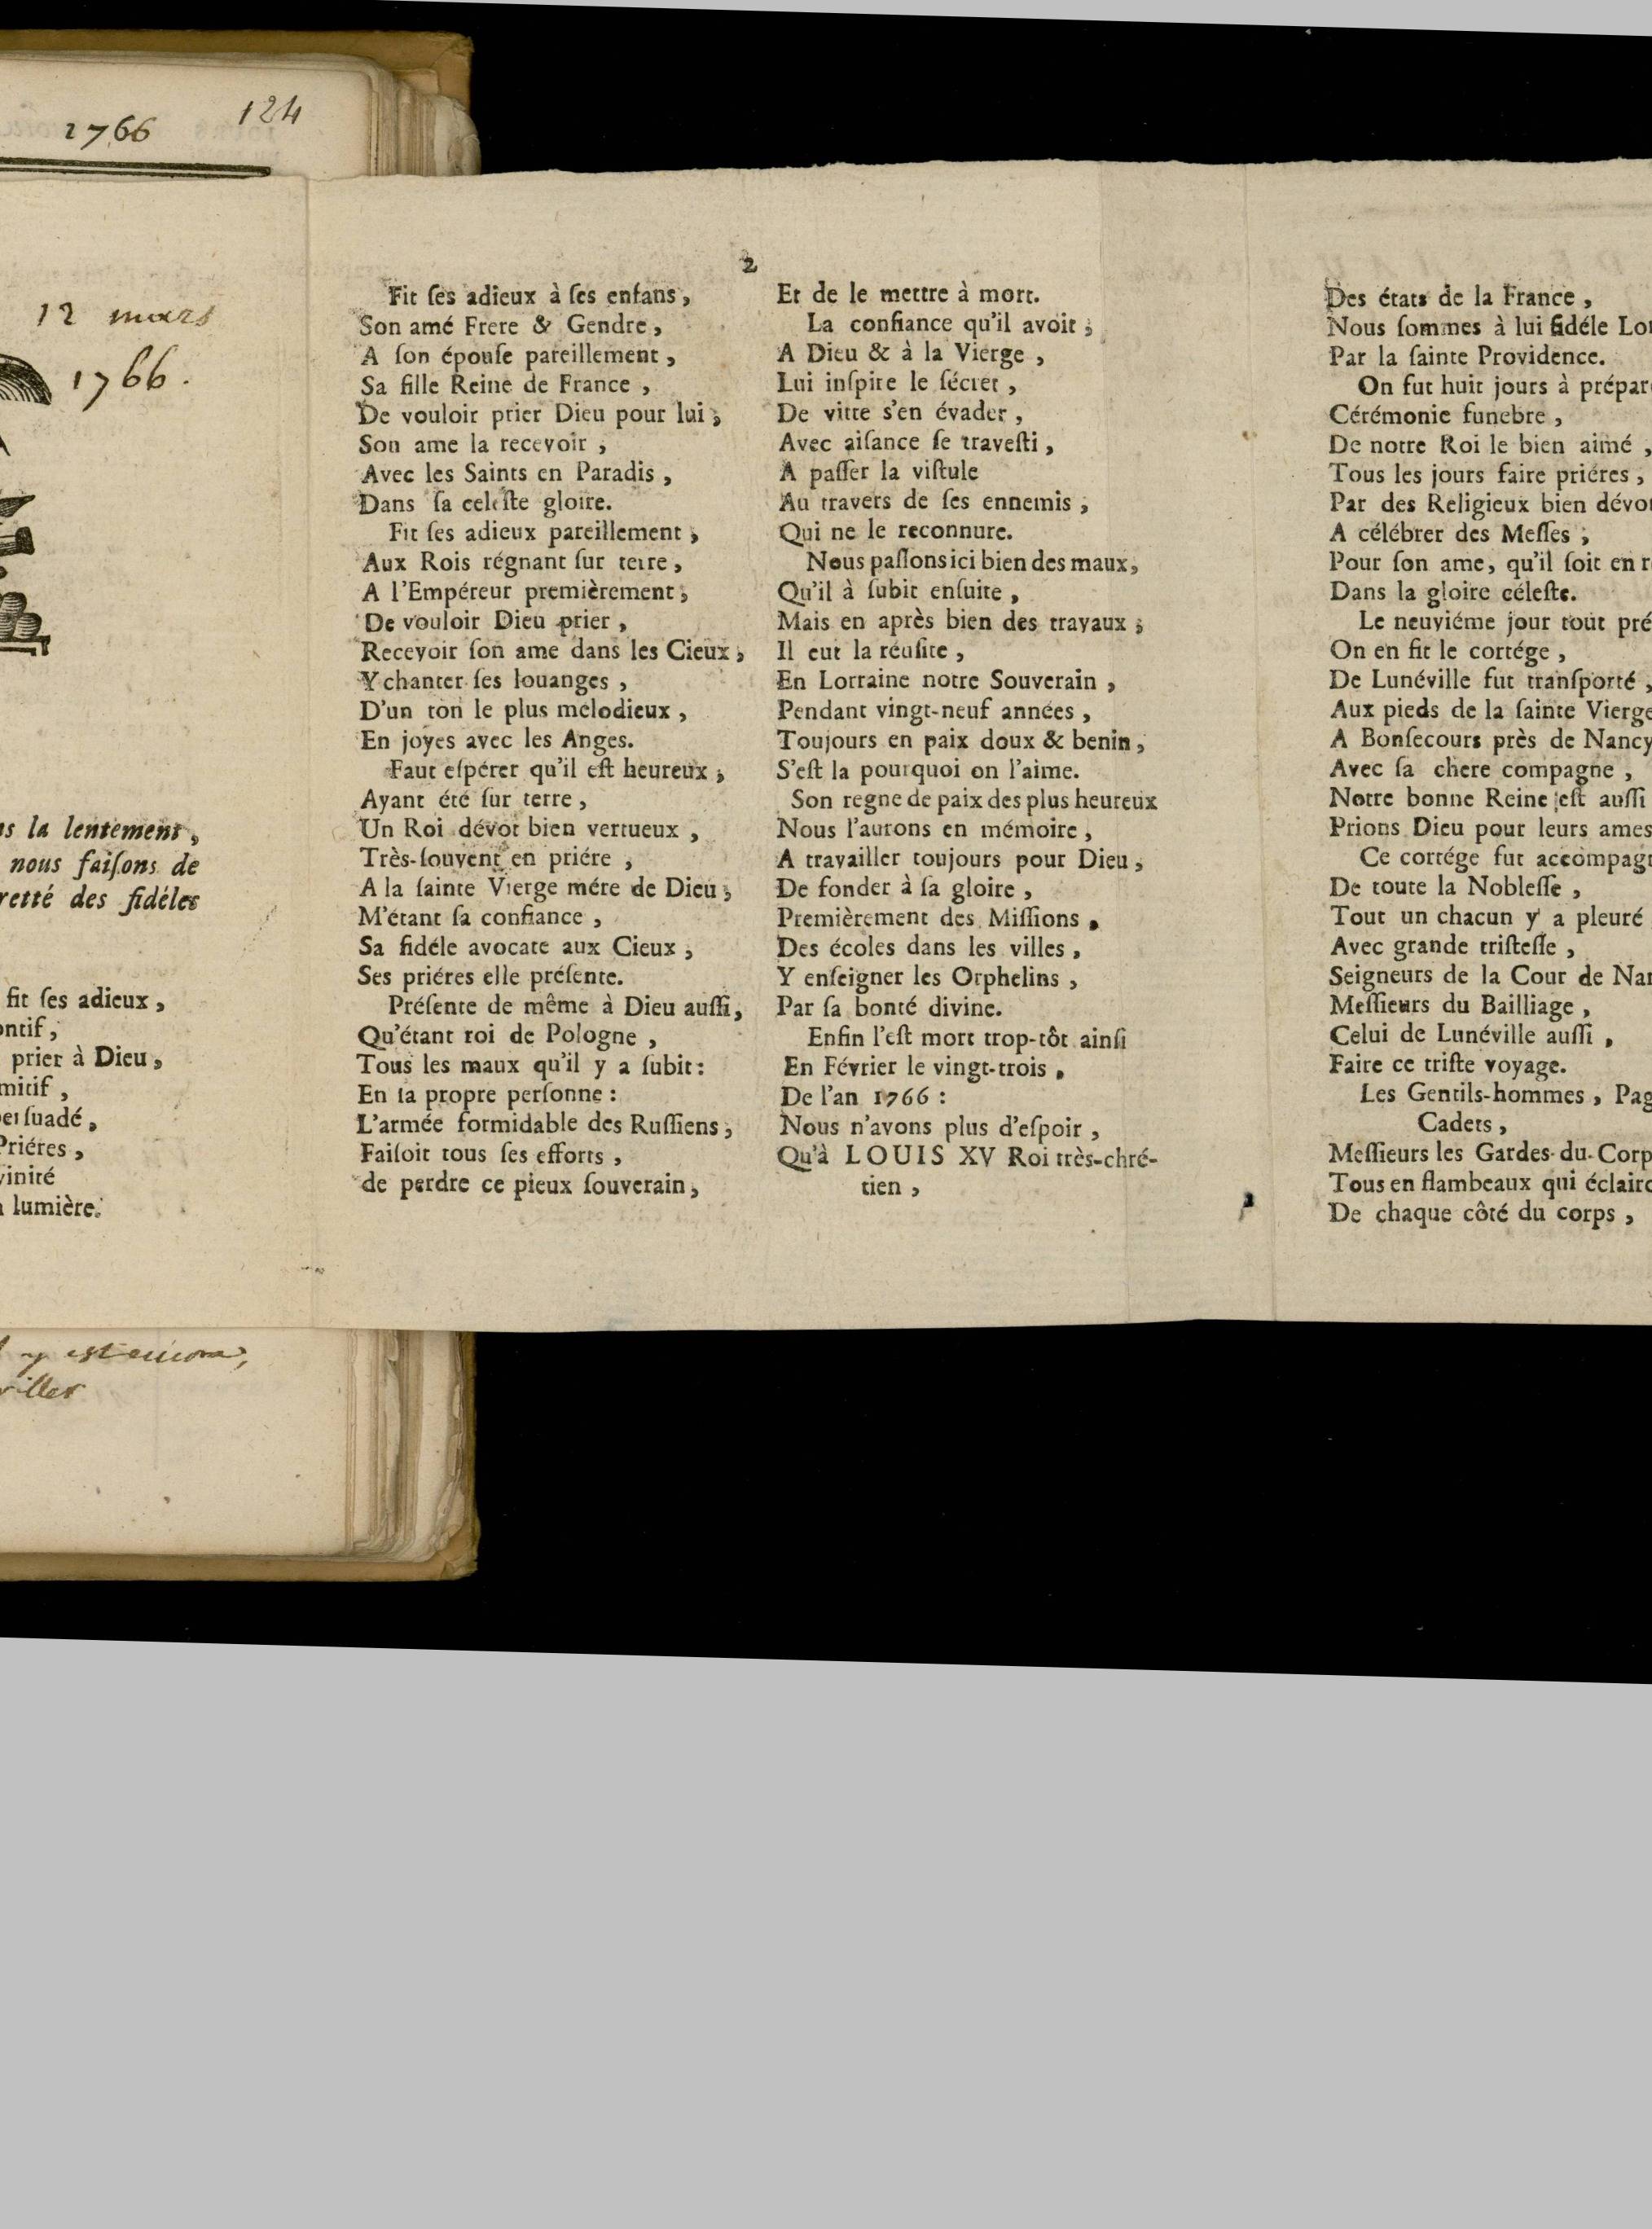 1766
124
12 mars
1766.
la lentement,
nous faiſons de
des fidéles
fit ſes adieux,
prier à Dieu,
Priéres,
lumière.
y est
2
Fit ſes adieux à ſes enfans,
Son amé Frere & Gendre,
A ſon épouſe pareillement,
Sa fille Reine de France,
De vouloir prier Dieu pour lui,
Son ame la recevoir,
Avec les Saints en Paradis,
Dans ſa celeſte gloire.
Fit ſes adieux pareillement,
Aux Rois régnant ſur terre,
A l'Empéreur premièrement,
De vouloir Dieu prier,
Recevoir ſon ame dans les Cieux,
Y chanter ſes louanges,
D'un ton le plus mélodieux,
En joyes avec les Anges.
Faut eſpérer qu'il eſt heureux,
Ayant été ſur terre,
Un Roi dévot bien vertueux,
Très-ſouvent en priére,
A la ſainte Vierge mére de Dieu,
M'étant ſa confiance,
Sa fidéle avocate aux Cieux,
Ses priéres elle préſente.
Préſente de même à Dieu auſſi,
Qu'étant roi de Pologne,
Tous les maux qu'il y a ſubit:
En ſa propre perſonne:
L'armée formidable des Ruſſiens,
Faiſoit tous ſes efforts,
de perdre ce pieux ſouverain,
Et de le mettre à mort.
La confiance qu'il avoit;
A Dieu & à la Vierge,
Lui inſpire le ſécret,
De vitte s'en évader,
Avec aiſance ſe traveſti,
A paſſer la viſtule
Au travers de ſes ennemis,
Qui ne le reconnure.
Nous paſſons ici bien des maux,
Qu'il à ſubit enſuite,
Mais en après bien des travaux;
Il eut la réuſite,
En Lorraine notre Souverain,
Pendant vingt-neuf années,
Toujours en paix doux & benin,
S'eſt la pourquoi on l'aime.
Son regne de paix des plus heureux
Nous l'aurons en mémoire,
A travailler toujours pour Dieu,
De fonder à ſa gloire,
Premièrement des Miſſions,
Des écoles dans les villes,
Y enſeigner les Orphelins,
Par ſa bonté divine.
Enfin l'eſt mort trop-tôt ainſi
En Février le vingt-trois,
De l'an 1766:
Nous n'avons plus d'eſpoir,
Qu'à LOUIS XV Roi très-chré-
tien,
Des états de la France,
Nous ſommes à lui fidéle
Par la ſainte Providence.
On fut huit jours à
Cérémonie funebre,
De notre Roi le bien aimé,
Tous les jours faire priéres,
Par des Religieux bien
A célébrer des Meſſes;
Pour ſon ame, qu'il ſoit en
Dans la gloire céleſte.
Le neuviéme jour tout
On en fit le cortége,
De Lunéville fut tranſporté,
Aux pieds de la ſainte Vierge
A Bonſecours près de Nancy
Avec ſa chere compagne,
Notre bonne Reine eſt auſſi
Prions Dieu pour leurs ames
Ce cortége fut
De toute la Nobleſſe,
Tout un chacun y a pleuré
Avec grande triſteſſe,
Seigneurs de la Cour de
Meſſieurs du Bailliage,
Celui de Lunéville auſſi,
Faire ce triſte voyage.
Les Gentils-hommes,
Cadets,
Meſſieurs les Gardes-du-
Tous en flambeaux qui
De chaque côté du corps,